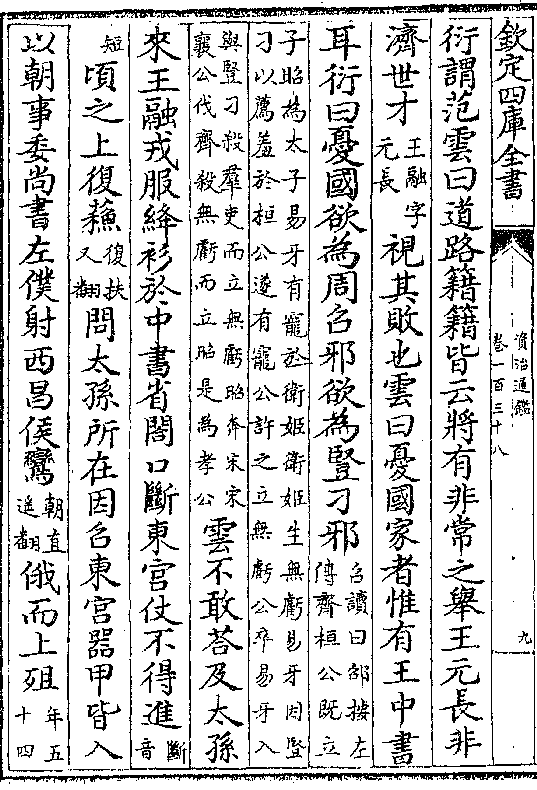 欽定四庫全書
資治通鑑
卷一百三十八
九
衍謂范雲曰道路籍籍皆云將有非常之舉王元長非
濟世才王融字元長視其敗也雲曰憂國家者惟有王中書
耳衍曰憂國欲為周召邪欲為豎刁邪召讀曰邵按左傳齊桓公既立
子昭為太子易牙有寵於衛姬衛姬生無虧易牙因豎刁以薦羞於桓公遂有寵公許之立無虧公卒易牙入
與豎刁殺羣吏而立無虧昭奔宋宋襄公伐齊殺無虧而立昭是為孝公雲不敢荅及太孫
來王融戎服絳衫於中書省閤口斷東宮仗不得進斷音
短頃之上復蘓復扶又翻問太孫所在因召東宮器甲皆入
以朝事委尚書左僕射西昌侯鸞朝直遥翻俄而上殂年五十四